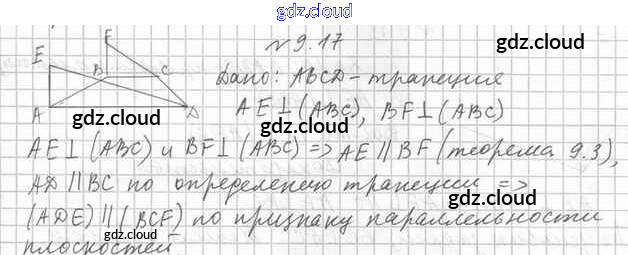 gdz.cz
F
N 9.17
gdz.cz
E
B
C
Дано: ABCD - трапеция
A
D
gdz.cz
gdz.cz
AE⊥(ABC), BF⊥(ABC)
AE⊥(ABC) и BF⊥(ABC) => AE||BF (теорема 9.3),
AD||BC по определению трапеции =>
gdz.cz
gdz.cz
(ADE)||(BCF) по признаку параллельности
плоскостей